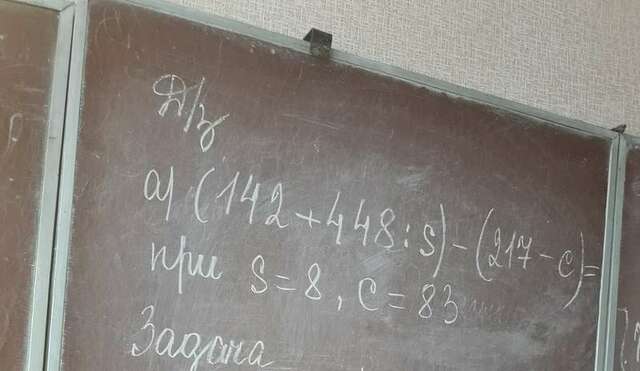 Д/з
а) (142+448:s)-(217-c)=
при s=8, c=83
Задача